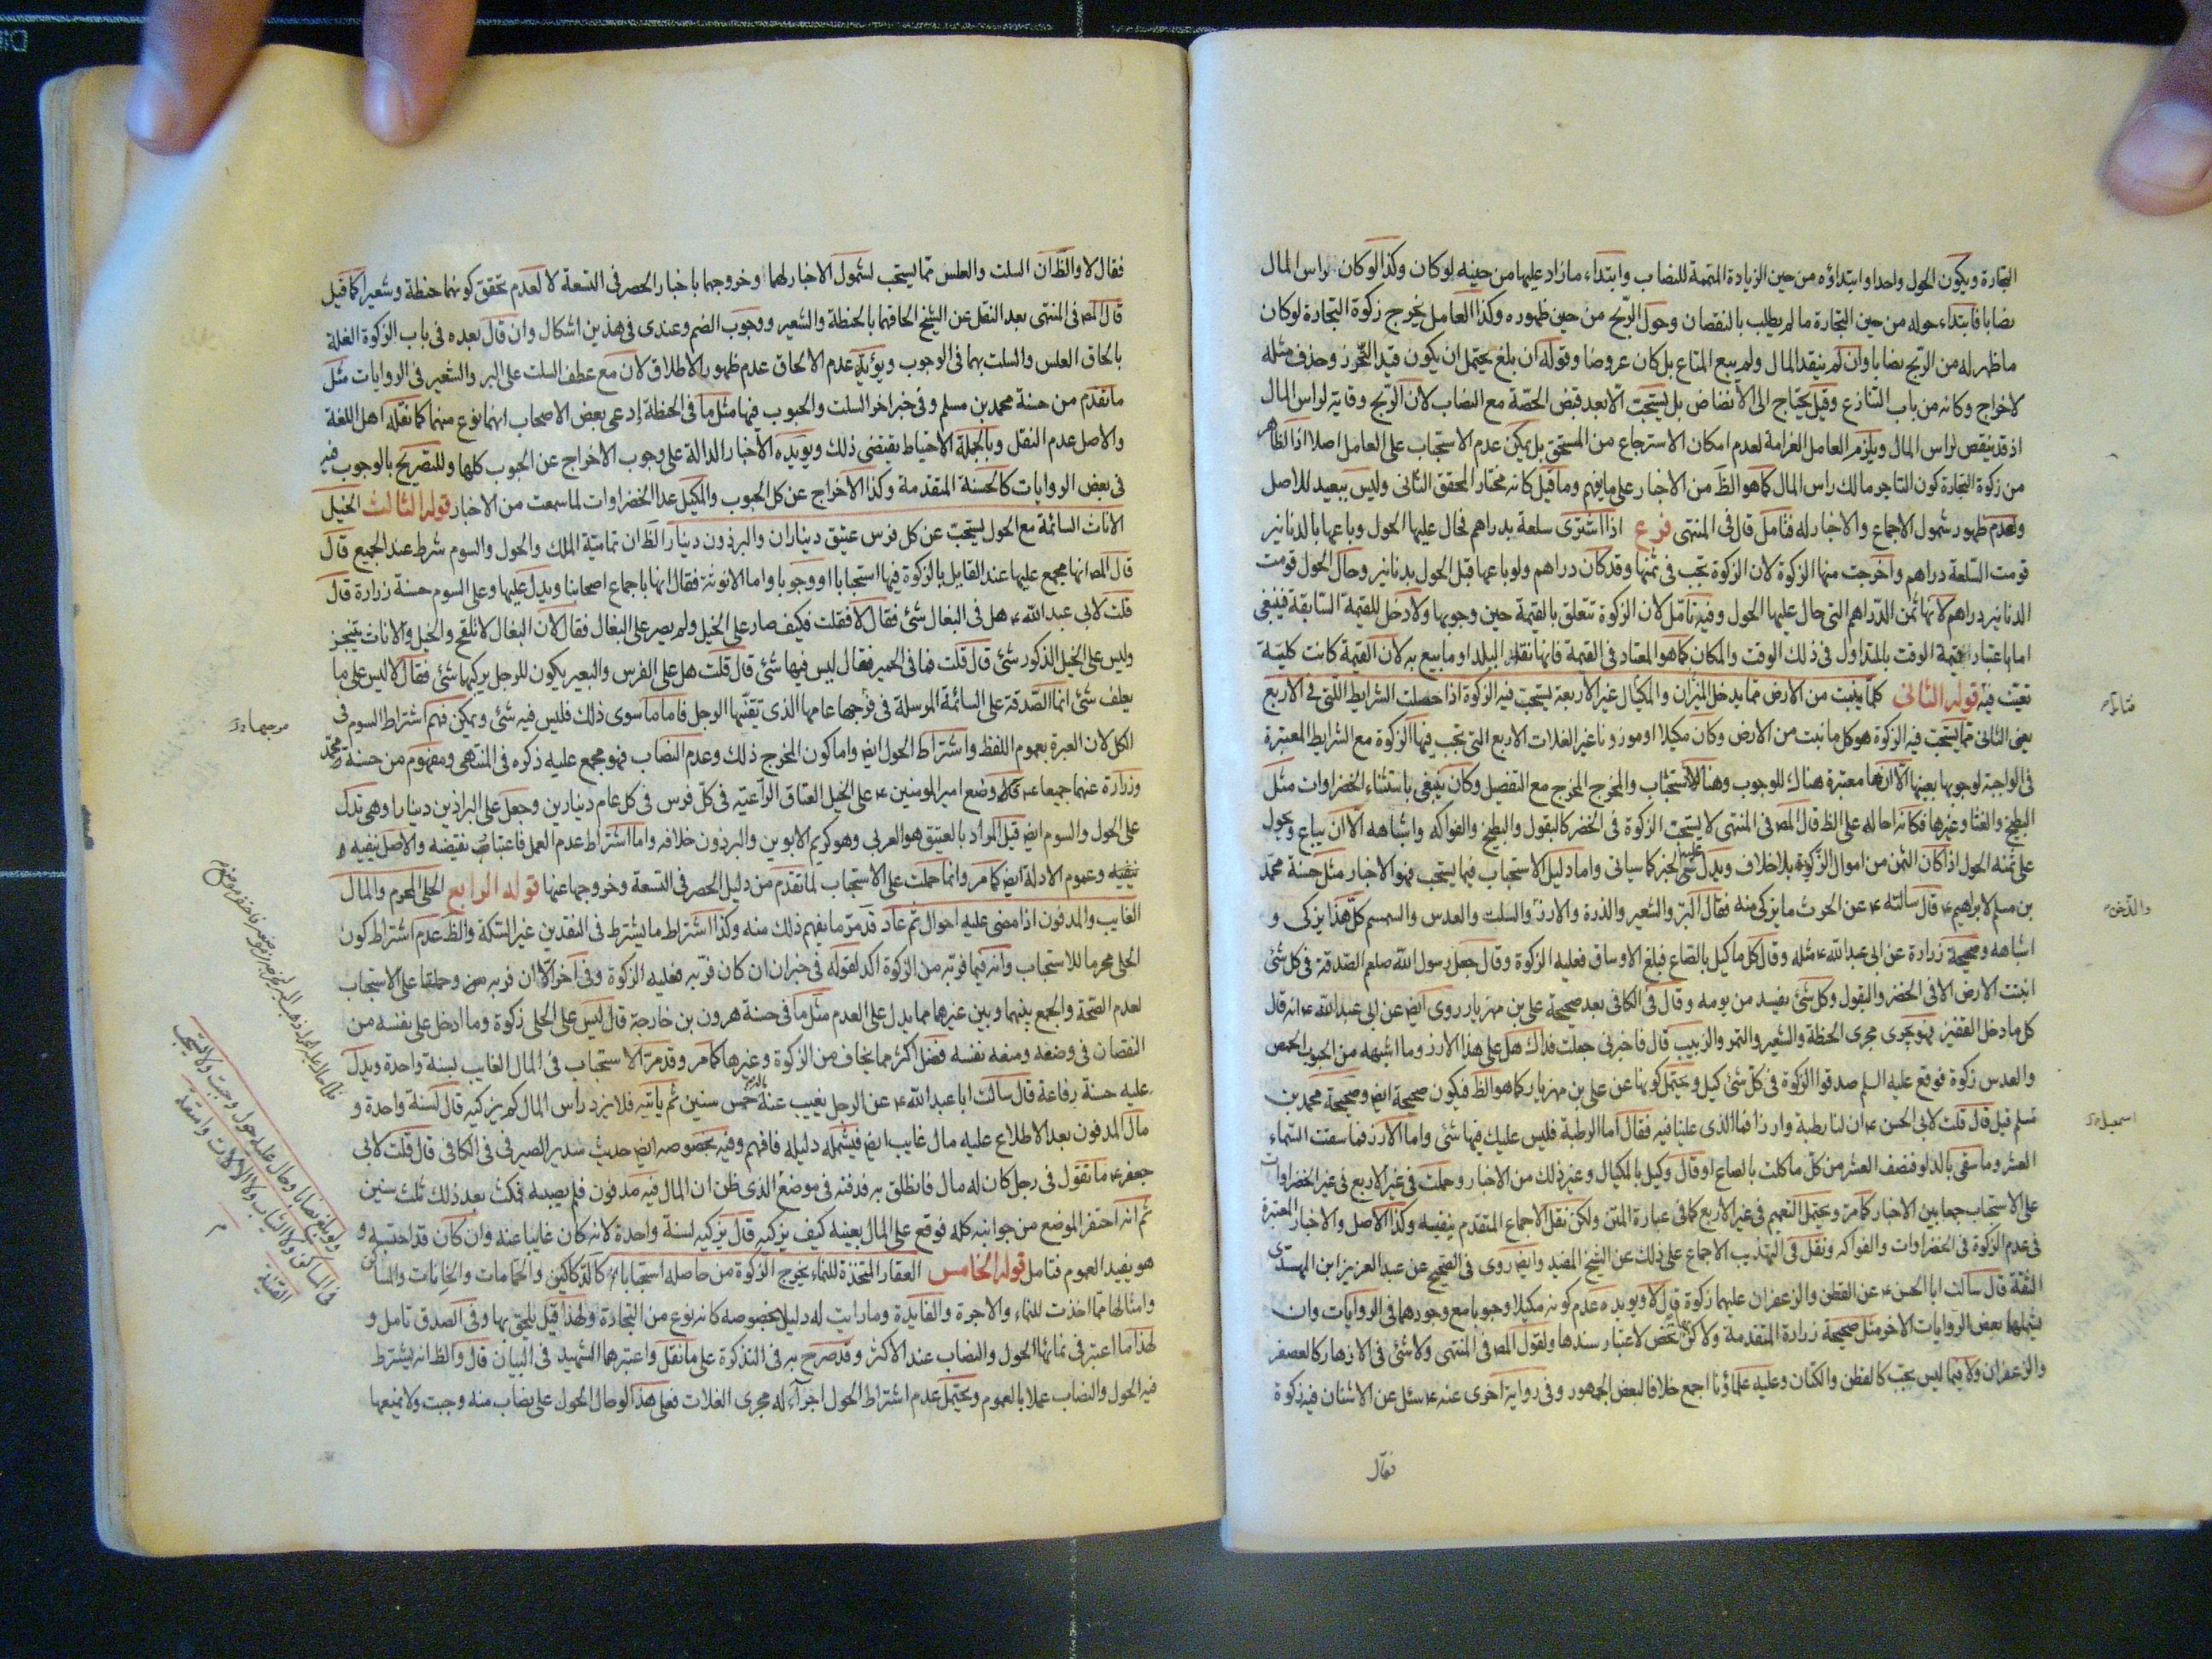 التجارة ويكون الحول واحدا وابتداؤه من حين الزيادة المتممة للنصاب وابتداء ما زاد عليها من حينه لو كان وكذا لو كان راس المال
نصابا فابتداء حوله من حين التجارة ما لم يطلب بالنقصان وحول الربح من حين ظهوره وكذا العامل يخرج زكوة التجارة لو كان
ما ظهر له من الربح نصابا وان لم ينقد المال ولم يبع المتاع بل كان عروضا وقوله ان بلغ يحتمل ان يكون قيد التحرز وحذف مثله
لاخراج وكانه من باب التنازع وقيل يحتاج الى الانضاض بل يستحب الا بعد قبض الحصة مع النصاب لان الربح وقاية لراس المال
اذ قد ينقص راس المال ويلزم العامل الغرامة لعدم امكان الاسترجاع من المستحق بل يمكن عدم الاستحباب على العامل اصلا اذ الظاهر
من زكوة التجارة كون التاجر مالك راس المال كما هو الظ من الاخبار على ما يفهم وما قيل كانه مختار المحقق الثانى وليس ببعيد للاصل
ولعدم ظهور شمول الاجماع والاخبار له فتامل قال فى المنتهى فرع اذا اشترى سلعة بدراهم فحال عليها الحول وباعها بالدنانير
قومت السلعة دراهم واخرجت منها الزكوة لان الزكوة تجب فى ثمنها وقد كان دراهم ولو باعها قبل الحول بدنانير وحال الحول قومت
الدنانير دراهم لانها ثمن الدراهم التى حال عليها الحول وفيه تامل لان الزكوة تتعلق بالقيمة حين وجوبها ولا دخل للقيمة السابقة فينبغى
اما باعتبار قيمة الوقت بالمتداول فى ذلك الوقت والمكان كما هو المعتاد فى القيمة فانها نقد البلد او ما بيع به لان القيمة كانت كلية
تعينت فيه قوله الثانى كلما ينبت من الارض مما يدخل الميزان والمكيال غير الاربعة يستحب فيه الزكوة اذا حصلت الشرايط التى فى الاربع
يعنى الثانى مما يستحب فيه الزكوة هو كل ما نبت من الارض وكان مكيلا او موزونا غير الغلات الاربع التى تجب فيها الزكوة مع الشرايط المعتبرة
فى الواجبة لوجوبها بعينها الا انها معتبرة هناك للوجوب وهنا للاستحباب والمخرج المخرج مع التفصيل وكان ينبغى باستثناء الخضراوات مثل
البطيخ والقثا وغيرها فكانه احاله على الظ قال المص فى المنتهى لا يستحب الزكوة فى الخضر كالبقول والبطيخ والفواكه واشباهه الا ان يباع ويحول
على ثمنه الحول اذا كان الثمن من اموال الزكوة بلا خلاف ويدل عليه الخبر كما سياتى واما دليل الاستحباب فيما يستحب فهو الاخبار مثل حسنة محمد
بن مسلم لابراهيم قال سالته ع عن الحرث ما يزكى منه فقال البر والشعير والذرة والارز والسلت والعدس والسمسم كل هذا يزكى و
اشباهه وصحيحة زرارة عن ابى عبد الله ع مثله وقال كل ما كيل بالصاع فبلغ الاوساق فعليه الزكوة وقال جعل رسول الله صلعم الصدقة فى كل شئ
انبتت الارض الا فى الخضر والبقول وكل شئ يفسد من يومه وقال فى الكافى بعد صحيحة على بن مهزيار روى ايض عن ابى عبد الله ع انه قال
كل ما دخل القفيز فهو يجرى مجرى الحنطة والشعير والتمر والزبيب قال فاخبرنى جعلت فداك هل على هذا الارز وما اشبهه من الحبوب الحمص
والعدس زكوة فوقع عليه السلم صدقوا الزكوة فى كل شئ كيل ويحتمل كونها عن على بن مهزيار كما هو الظ فيكون صحيحة ايض وصحيحة محمد بن
مسلم قيل قال قلت لابى الحسن ع ان لنا رطبة وارزا فما الذى علينا فيه فقال اما الرطبة فليس عليك فيها شئ واما الارز فما سقت السماء
العشر وما سقى بالدلو فنصف العشر من كل ما كلت بالصاع او قال وكيل بالمكيال وغير ذلك من الاخبار وحملت فى غير الاربع فى غير الخضراوات
على الاستحباب جمعا بين الاخبار كما مر ويحتمل التعميم فى غير الاربع كما فى عبارة المتن ولكن نقل الاجماع المتقدم ينفيه وكذا الاصل والاخبار المعتبرة
فى عدم الزكوة فى الخضراوات والفواكه ونقل فى التهذيب الاجماع على ذلك عن الشيخ المفيد وايض روى فى الصحيح عن عبد العزيز ابن المهتدى
الثقة قال سالت ابا الحسن ع عن القطن والزعفران عليهما زكوة قال لا ويؤيده عدم كونه مكيلا وجوبا مع وجودهما فى الروايات وان
يشملها بعض الروايات الاخر مثل صحيحة زرارة المتقدمة لاعتبار سندها ولقول المص فى المنتهى ولا شئ فى الازهار كالعصفر
والزعفران ولا فيما ليس بحب كالقطن والكتان وعليه علماؤنا اجمع خلافا لبعض الجمهور وفى رواية اخرى عنه ع سئل عن الاشنان فيه زكوة
فقال
والدخن
فقال لا والظ ان السلت والعلس مما يستحب لشمول الاخبار لهما وخروجهما باخبار الحصر فى التسعة لا لعدم تحقق كونهما حنطة وشعيرا كما قيل
قال المص فى المنتهى بعد النقل عن الشيخ الحاقهما بالحنطة والشعير ووجوب الضم وعندى فى هذين اشكال وان قال بعده فى باب الزكوة الغلة
بالحاق العلس والسلت بهما فى الوجوب ويؤيد عدم الالحاق عدم ظهور الاطلاق لان مع عطف السلت على البر والشعير فى الروايات مثل
ما تقدم من حسنة محمد بن مسلم وفى خبر اخر السلت والحبوب فيها مثل ما فى الحنطة ادعى بعض الاصحاب انهما نوع منهما كما نقله اهل اللغة
والاصل عدم النقل وبالجملة الاحتياط يقتضى ذلك ويؤيده الاخبار الدالة على وجوب الاخراج عن الحبوب كلها وللتصريح بالوجوب فيه
فى بعض الروايات كالحسنة المتقدمة وكذا الاخراج عن كل الحبوب والمكيل عدا الخضراوات لما سمعت من الاخبار قوله الثالث الخيل
الاناث السائمة مع الحول يستحب عن كل فرس عتيق ديناران والبرذون دينار الظ ان تمامية الملك والحول والسوم شرط عند الجميع قال
قال المص انها مجمع عليها عند القايل بالزكوة فيها استحبابا او وجوبا واما الانوثة فقال انها باجماع اصحابنا ويدل عليها وعلى السوم حسنة زرارة قال
قلت لابى عبد الله ع هل فى البغال شئ فقال لا فقلت فكيف صار على الخيل ولم يصر على البغال فقال لان البغال لا تلقح والخيل والاناث ينتجن
وليس على الخيل الذكور شئ قال قلت فما فى الحمير فقال ليس فيها شئ قال قلت هل على الفرس والبعير يكون للرجل يركبهما شئ فقال لا ليس على ما
يعلف شئ انما الصدقة على السائمة المرسلة فى مرجها عامها الذى يقتنيها الرجل فاما ما سوى ذلك فليس فيه شئ ويمكن فهم اشتراط السوم فى
الكل لان العبرة بعموم اللفظ واشتراط الحول ايض واما كون المخرج ذلك وعدم النصاب فهو مجمع عليه ذكره فى المنتهى ومفهوم من حسنة محمد
وزرارة عنهما جميعا ع قالا وضع امير المومنين ع على الخيل العتاق الراعية فى كل فرس فى كل عام دينارين وجعل على البراذين دينارا وهى تدل
على الحول والسوم ايض قيل المراد بالعتيق هو العربى وهو كريم الابوين والبرذون خلافه واما اشتراط عدم العمل فاعتبار نقيضه والاصل ينفيه و
ينفيه وعموم الادلة ايض كما مر وانما حملت على الاستحباب لما تقدم من دليل الحصر فى التسعة وخروجها عنها قوله الرابع الحلى المحرم والمال
الغايب والمدفون اذا مضى عليه احوال ثم عاد قد مر ما يفهم ذلك منه وكذا اشتراط ما يشترط فى النقدين غير السكة والظ عدم اشتراط كون
الحلى محرما للاستحباب وانه فيما فر به من الزكوة اكد لقوله فى خبر ان كان فر به فعليه الزكوة وفى اخر الا ان فر به من وحملها على الاستحباب
لعدم الصحة والجمع بينهما وبين غيرهما مما يدل على العدم مثل ما فى حسنة هرون بن خارجة قال ليس على الحلى زكوة وما ادخل على نفسه من
النقصان فى وضعه ومنعه نفسه فضل اكثر مما يخاف من الزكوة وغيرها كما مر وقد مر الاستحباب فى المال الغايب لسنة واحدة ويدل
عليه حسنة رفاعة قال سالت ابا عبد الله ع عن الرجل يغيب عنه ماله خمس سنين ثم ياتيه فلا يرد راس المال كم يزكيه قال لسنة واحدة و
مال المدفون بعد الاطلاع عليه مال غايب ايض فيشمله دليله فافهم وفيه بخصوصه ايض حديث سدير الصيرفى فى الكافى قال قلت لابى
جعفر ع ما تقول فى رجل كان له مال فانطلق به فدفنه فى موضع الذى ظن ان المال فيه مدفون فلم يصبه فمكث بعد ذلك ثلث سنين
ثم انه احتفر الموضع من جوانبه كله فوقع على المال بعينه كيف يزكيه قال يزكيه لسنة واحدة لانه كان غايبا عنه وان كان قد احتبسه و
هو يفيد العموم فتامل قوله الخامس العقار المتخذة للنماء يخرج الزكوة من حاصله استحبابا كالدكاكين والحمامات والخانات والمساكن
وامثالها مما اخذت للنماء والاجرة والفايدة وما رايت له دليلا بخصوصه كانه نوع من التجارة ولهذا قيل يلحق بها وفى الصدق تامل و
لهذا ما اعتبر فى نمائها الحول والنصاب عند الاكثر وقد صرح به فى التذكرة على ما نقل واعتبرهما الشهيد فى البيان قال والظ انه يشترط
فيه الحول والنصاب عملا بالعموم ويحتمل عدم اشتراط الحول اجراء له مجرى الغلات فعلى هذا لو حال الحول على نصاب منه وجبت ولا يمنعها
ولو بلغ نصابا وحال عليه حول وجبت ولا يستحب
فى المساكن ولا الثياب ولا الآلات وامتعة
القنية